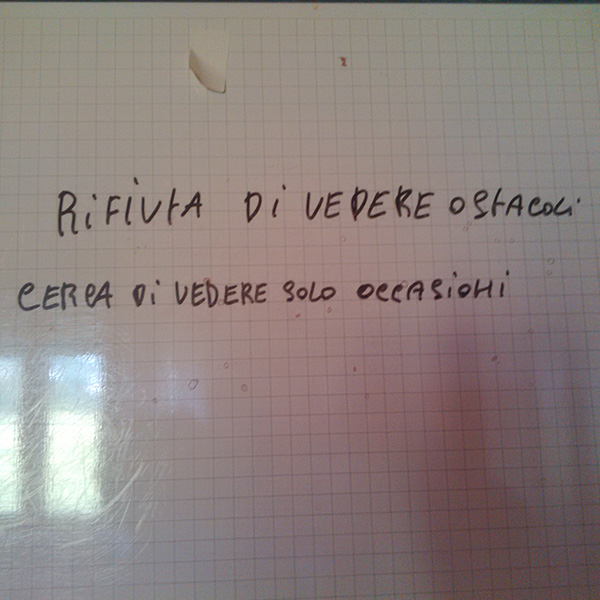 RiFiUtA Di VEDERE OStACOLi
CERCA Di VEDERE SOLO OCCASiONi